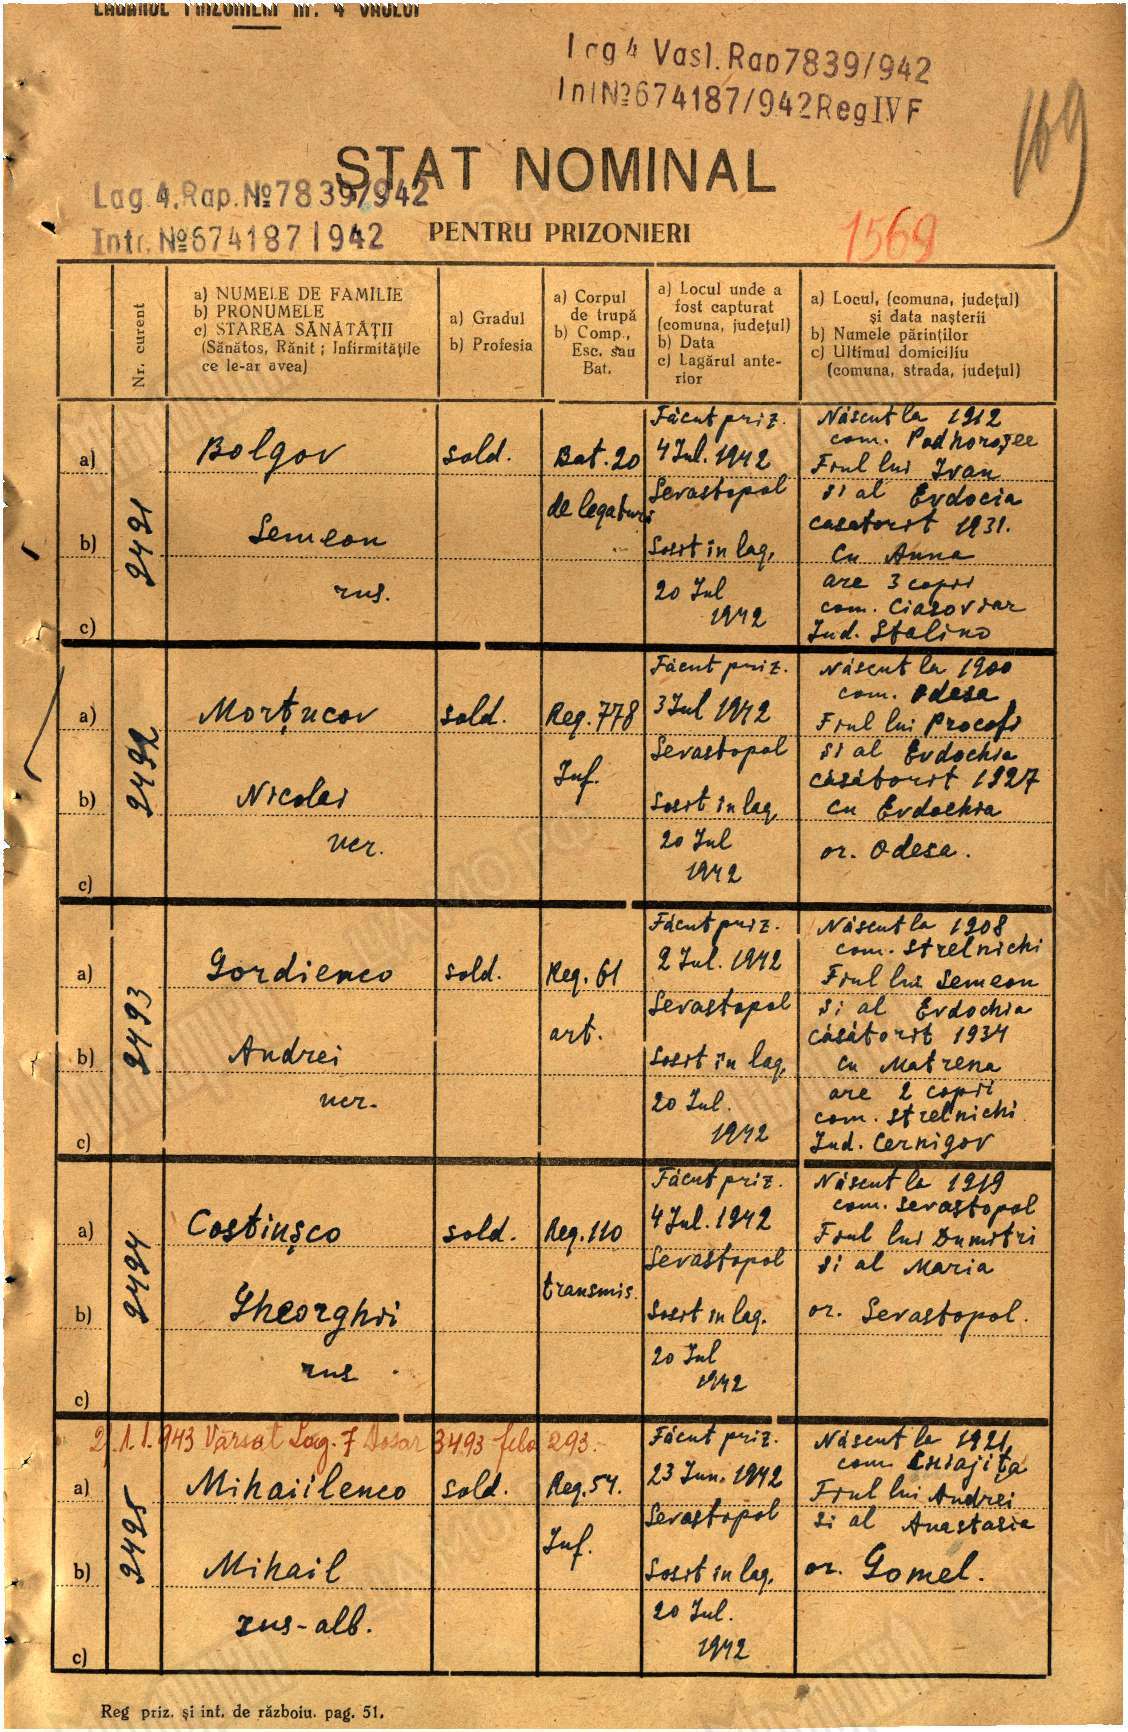 LAGĂRUL PRIZONIERI nr. 4 VASLUI
Lag 4 Vasl. Rap 7839/942
Int No 674187/942 Reg IV F
169
STAT NOMINAL
Lag. 4. Rap. No 7839/942
Intr. No 674187/942
PENTRU PRIZONIERI
1569
Nr. curent
a) NUMELE DE FAMILIE
b) PRONUMELE
c) STAREA SĂNĂTĂȚII
(Sănătos, Rănit ; Infirmitățile
ce le-ar avea)
a) Gradul
b) Profesia
a) Corpul
de trupă
b) Comp.,
Esc. sau
Bat.
a) Locul unde a
fost capturat
(comuna, județul)
b) Data
c) Lagărul ante-
rior
a) Locul, (comuna, județul)
și data nașterii
b) Numele părinților
c) Ultimul domiciliu
(comuna, strada, județul)
a)
b)
c)
2491
Bolgov
Semeon
rus.
sold.
Bat. 20
de legaturi
Făcut priz.
4 Iul. 1942
Sevastopol
Sosit in lag.
20 Iul
1942
Născut la 1912
com. Podhorojee
Fiul lui Ivan
si al Evdocia
casatorit 1931.
Cu Anna
are 3 copii
com. Ciasoviar
Jud. Stalino
a)
b)
c)
2492
Morțucov
Nicolai
ucr.
sold.
Reg. 778
Inf.
Făcut priz.
3 Iul 1942
Sevastopol
Sosit in lag.
20 Iul
1942
Născut la 1900
com. Odesa
Fiul lui Procofi
si al Evdochia
căsătorit 1927
cu Evdochia
or. Odesa.
a)
b)
c)
2493
Gordienco
Andrei
ucr.
sold.
Reg. 61
art.
Făcut priz.
2 Iul. 1942
Sevastopol
Sosit in lag.
20 Iul.
1942
Născut la 1908
com. Strelnichi
Fiul lui Semeon
si al Evdochia
căsătorit 1934
cu Matrena
are 2 copii
com. Strelnichi
Jud. Cernigov
a)
b)
c)
2494
Costiușco
Gheorghii
rus
sold.
Reg. 110
transmis.
Făcut priz.
4 Iul. 1942
Sevastopol
Sosit in lag.
20 Iul
1942
Născut la 1919
com. Sevastopol
Fiul lui Dumitri
si al Maria
or. Sevastopol.
21.1.943 Vărsat Lag. 7 Dosar 3493 fila 293.-
a)
b)
c)
2495
Mihaiilenco
Mihail
rus-alb.
sold.
Reg. 54.
Inf.
Făcut priz.
23 Iun. 1942
Sevastopol
Sosit in lag.
20 Iul.
1942
Născut la 1921,
com.
Fiul lui Andrei
si al Anastasia
or. Gomel.
Reg priz. și int. de războiu. pag. 51.